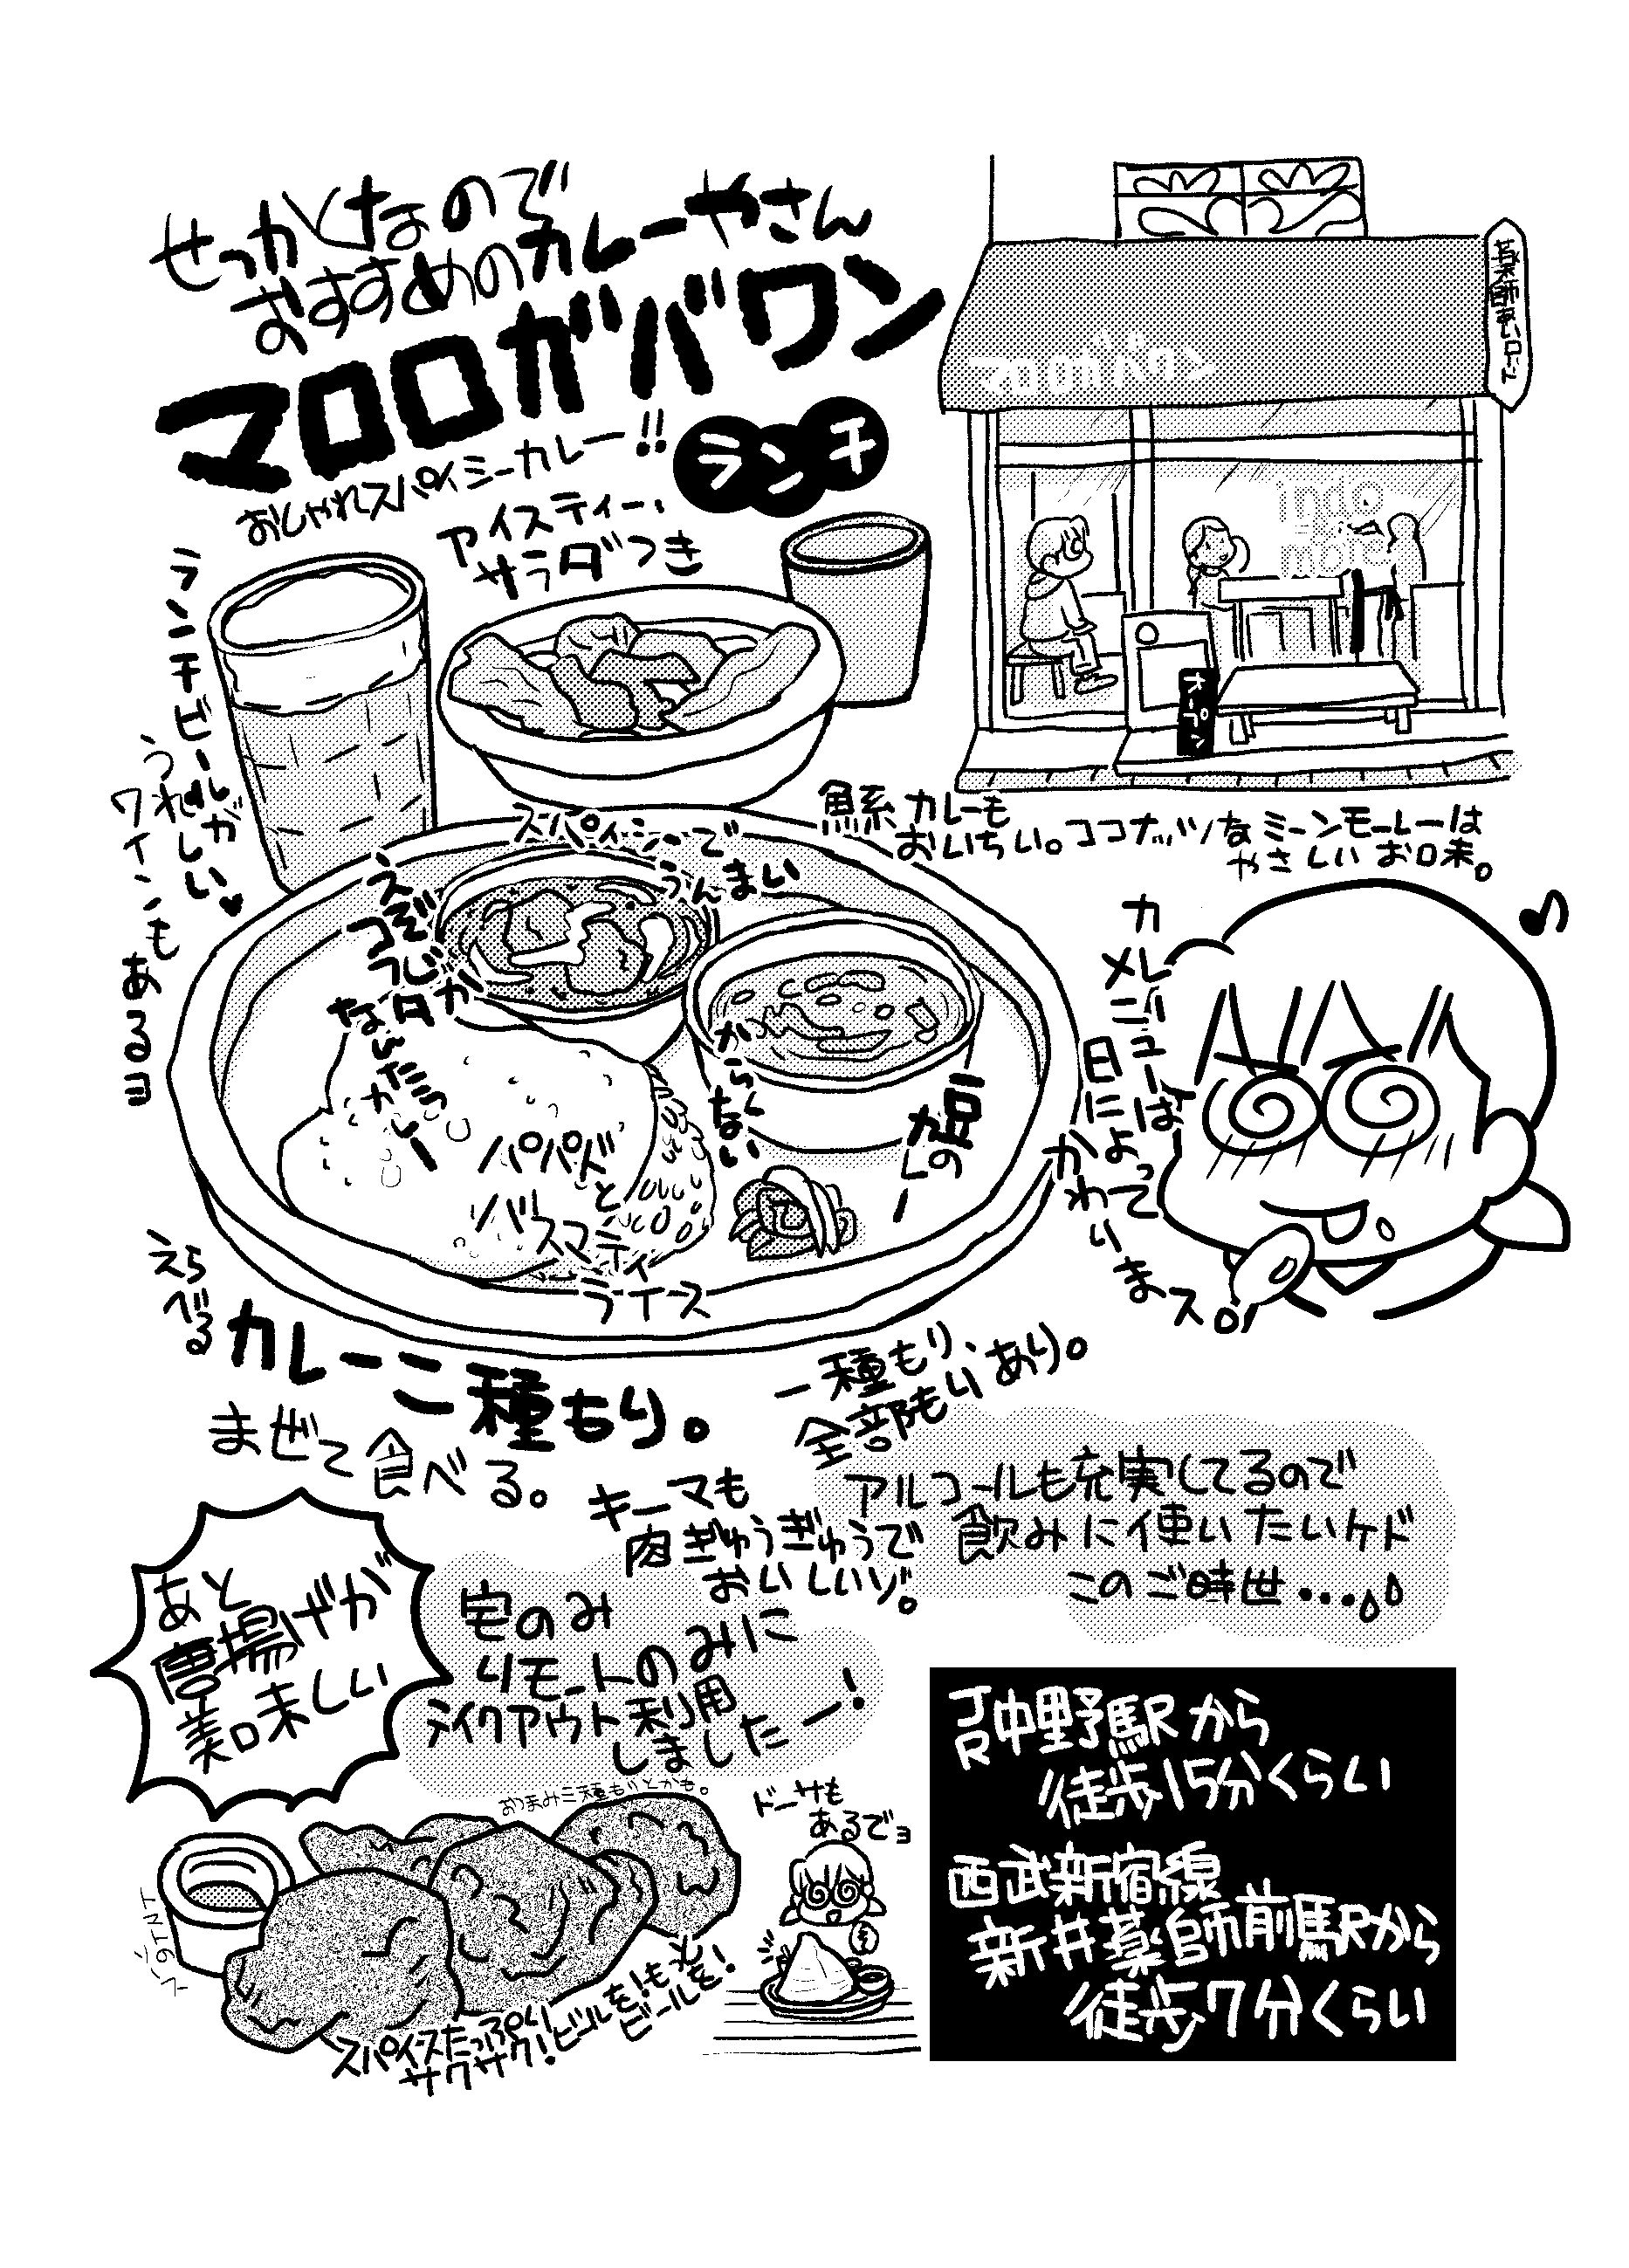 せっかくなので
おすすめのカレーやさん
マロロガバワン
おしゃれスパイシーカレー!!
ランチ
アイスティー、
サラダつき
ランチビールが
うれしい♥
ワインも
あるヨ
マロロガバワン
indo
mo
オープン
魚系カレーも
おいちい。ココナッツなミーンモーレーは
やさしいお味。
スパイシーで
うんまい
なんたらカレー
からくない
豆の
カレー
パパドと
バスマティ
ライス
カレー
メニューは
日によって
かわります。
♪
えら
べる
カレー二種もり。
まぜて食べる。
一種もり、
全部もりあり。
キーマも
肉ぎゅうぎゅうで
おいしいゾ。
アルコールも充実してるので
飲みに使いたいケド
このご時世・・・
あと
唐揚げが
美味しい
宅のみ
リモートのみに
テイクアウト利用
しましたー!
おつまみ三種もりとかも。
スパイスたっぷり
サクサク!ビールを!もっと
ビールを!
ドーサも
あるでヨ
JR中野駅から
徒歩15分くらい
西武新宿線
新井薬師前駅から
徒歩7分くらい